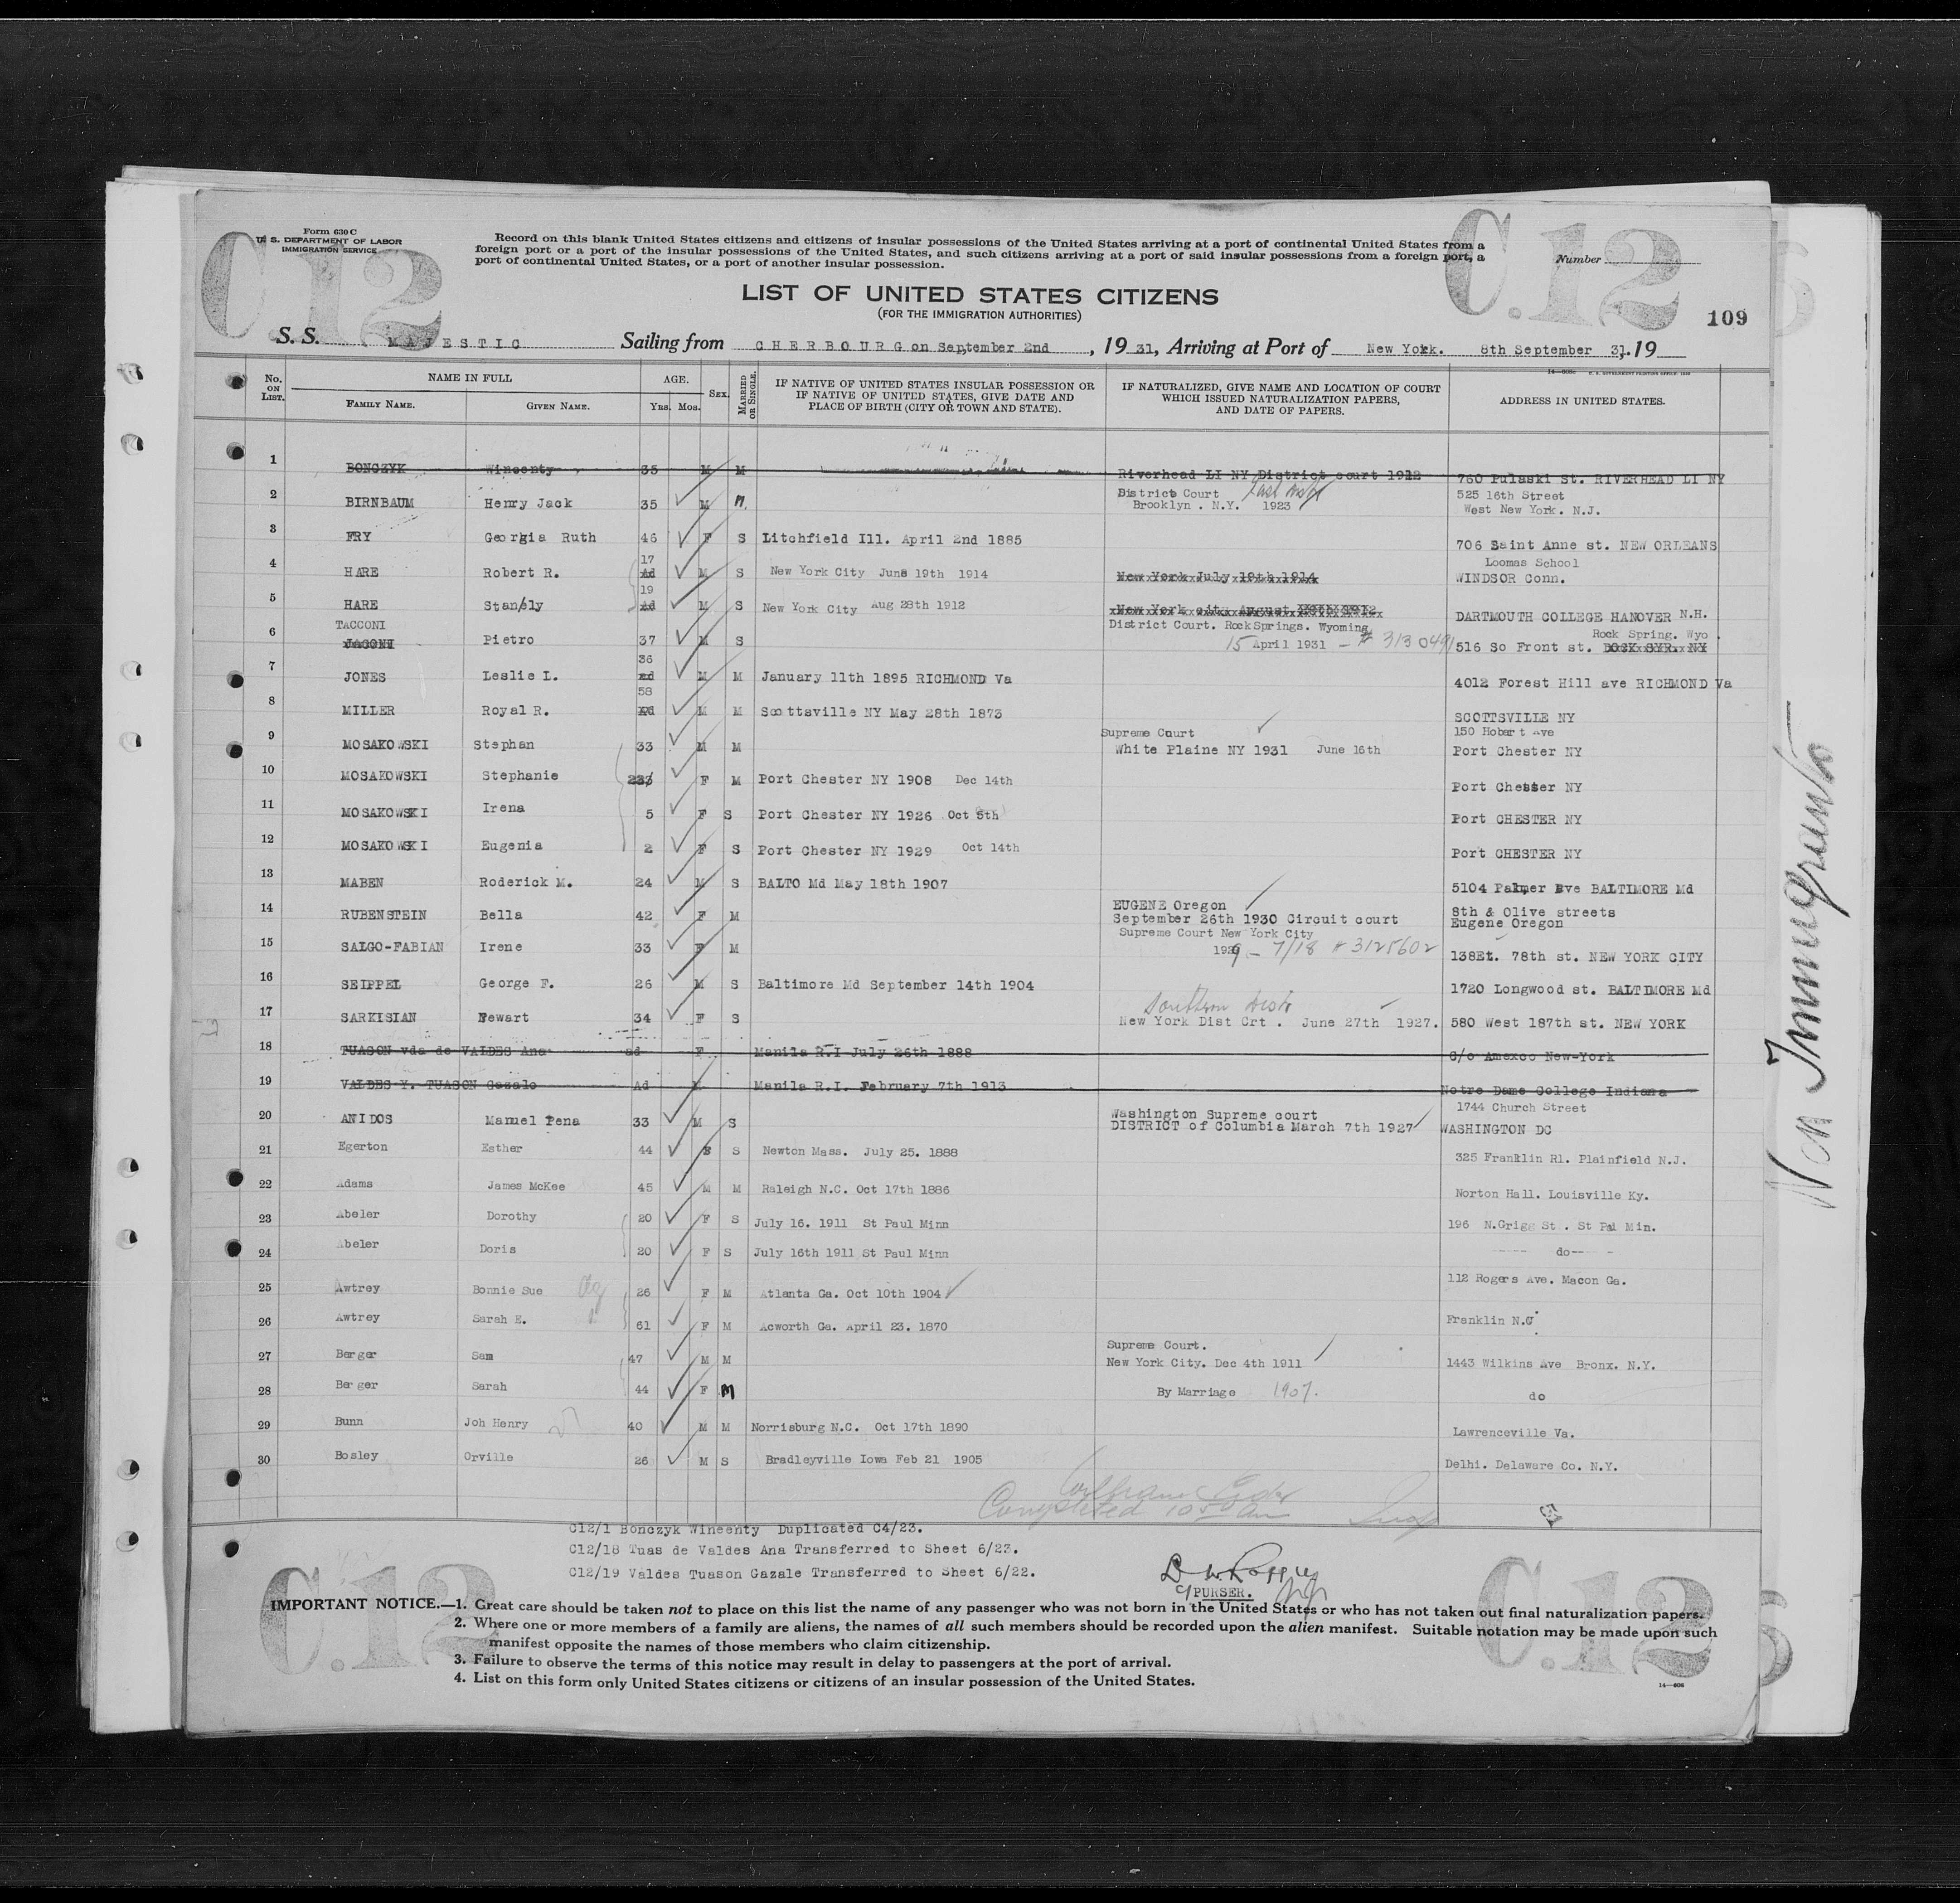 Form 630 C
U. S. DEPARTMENT OF LABOR
IMMIGRATION SERVICE
C.12
C.12
Record on this blank United States citizens and citizens of insular possessions of the United States arriving at a port of continental United States from a
foreign port or a port of the insular possessions of the United States, and such citizens arriving at a port of said insular possessions from a foreign port, a
port of continental United States, or a port of another insular possession.
Number
LIST OF UNITED STATES CITIZENS
(FOR THE IMMIGRATION AUTHORITIES)
109
S. S. MAJESTIC Sailing from CHERBOURG on September 2nd, 19 31, Arriving at Port of New York. 8th September 31.19
No. ON LIST. NAME IN FULL AGE. SEX. MARRIED OR SINGLE. IF NATIVE OF UNITED STATES INSULAR POSSESSION OR IF NATIVE OF UNITED STATES, GIVE DATE AND PLACE OF BIRTH (CITY OR TOWN AND STATE). IF NATURALIZED, GIVE NAME AND LOCATION OF COURT WHICH ISSUED NATURALIZATION PAPERS, AND DATE OF PAPERS. ADDRESS IN UNITED STATES.
FAMILY NAME. GIVEN NAME. Yrs. Mos.
1 BONCZYK Wincenty 35 M M Riverhead LI NY District court 1912 760 Pulaski St. RIVERHEAD LI NY
2 BIRNBAUM Henry Jack 35 M M District Court Brooklyn . N.Y. 1923 525 16th Street West New York. N.J.
3 FRY Georgia Ruth 46 F S Litchfield Ill. April 2nd 1885 706 Saint Anne st. NEW ORLEANS
4 HARE Robert R. 17 Ad M S New York City June 19th 1914 New York July 19th 1914 Loomas School WINDSOR Conn.
5 HARE Stanely 19 Ad M S New York City Aug 28th 1912 New York city August 1912 DARTMOUTH COLLEGE HANOVER N.H.
6 TACCONI JACONI Pietro 37 M S District Court. RockSprings. Wyoming 15 April 1931 - # 3130491 516 So Front st. Rock Spring. Wyo.
7 JONES Leslie L. 36 M M January 11th 1895 RICHMOND Va 4012 Forest Hill ave RICHMOND Va
8 MILLER Royal R. 58 M M Scottsville NY May 28th 1873 SCOTTSVILLE NY
9 MOSAKOWSKI Stephan 33 M M Supreme Court White Plaine NY 1931 June 16th 150 Hobart Ave Port Chester NY
10 MOSAKOWSKI Stephanie F M Port Chester NY 1908 Dec 14th Port Chester NY
11 MOSAKOWSKI Irena 5 F S Port Chester NY 1926 Oct 5th Port CHESTER NY
12 MOSAKOWSKI Eugenia 2 F S Port Chester NY 1929 Oct 14th Port CHESTER NY
13 MABEN Roderick M. 24 M S BALTO Md May 18th 1907 5104 Palmer Ave BALTIMORE Md
14 RUBENSTEIN Bella 42 F M EUGENE Oregon September 26th 1930 Circuit court 8th & Olive streets Eugene Oregon
15 SALGO-FABIAN Irene 33 F M Supreme Court New York City 1929 - 7/18 # 3125602 138Et. 78th st. NEW YORK CITY
16 SEIPPEL George F. 26 M S Baltimore Md September 14th 1904 1720 Longwood st. BALTIMORE Md
17 SARKISIAN Newart 34 F S Southern Distr New York Dist Crt . June 27th 1927. 580 West 187th st. NEW YORK
18 TUASON vda de VALDES Ana ad F Manila R.I July 26th 1888 C/o Amexco New-York
19 VALDES Y. TUASON Gazalo Ad M Manila R.I. February 7th 1913 Notre Dame College Indiana
20 ANIDOS Manuel Pena 33 M S Washington Supreme court DISTRICT of Columbia March 7th 1927 1744 Church Street WASHINGTON DC
21 Egerton Esther 44 S Newton Mass. July 25. 1888 325 Franklin Rl. Plainfield N.J.
22 Adams James McKee 45 M M Raleigh N.C. Oct 17th 1886 Norton Hall. Louisville Ky.
23 Abeler Dorothy 20 F S July 16. 1911 St Paul Minn 196 N.Grigg St . St Paul Min.
24 Abeler Doris 20 F S July 16th 1911 St Paul Minn ----- do-- -
25 Awtrey Bonnie Sue 26 F M Atlanta Ga. Oct 10th 1904 112 Rogers Ave. Macon Ga.
26 Awtrey Sarah E. 61 F M Acworth Ga. April 23. 1870 Franklin N.C
27 Berger Sam 47 M M Supreme Court. New York City. Dec 4th 1911 1443 Wilkins Ave Bronx. N.Y.
28 Berger Sarah 44 F M By Marriage 1907. do
29 Bunn Joh Henry 40 M M Norrisburg N.C. Oct 17th 1890 Lawrenceville Va.
30 Bosley Orville 26 M S Bradleyville Iowa Feb 21 1905 Delhi. Delaware Co. N.Y.
Completed 10 50 am
C12/1 Bonczyk Wineenty Duplicated C4/23.
C12/18 Tuas de Valdes Ana Transferred to Sheet 6/23.
C12/19 Valdes Tuason Gazale Transferred to Sheet 6/22.
PURSER.
C.12
C.12
IMPORTANT NOTICE.—1. Great care should be taken not to place on this list the name of any passenger who was not born in the United States or who has not taken out final naturalization papers.
2. Where one or more members of a family are aliens, the names of all such members should be recorded upon the alien manifest. Suitable notation may be made upon such
manifest opposite the names of those members who claim citizenship.
3. Failure to observe the terms of this notice may result in delay to passengers at the port of arrival.
4. List on this form only United States citizens or citizens of an insular possession of the United States.
14—606
Non Immigrants